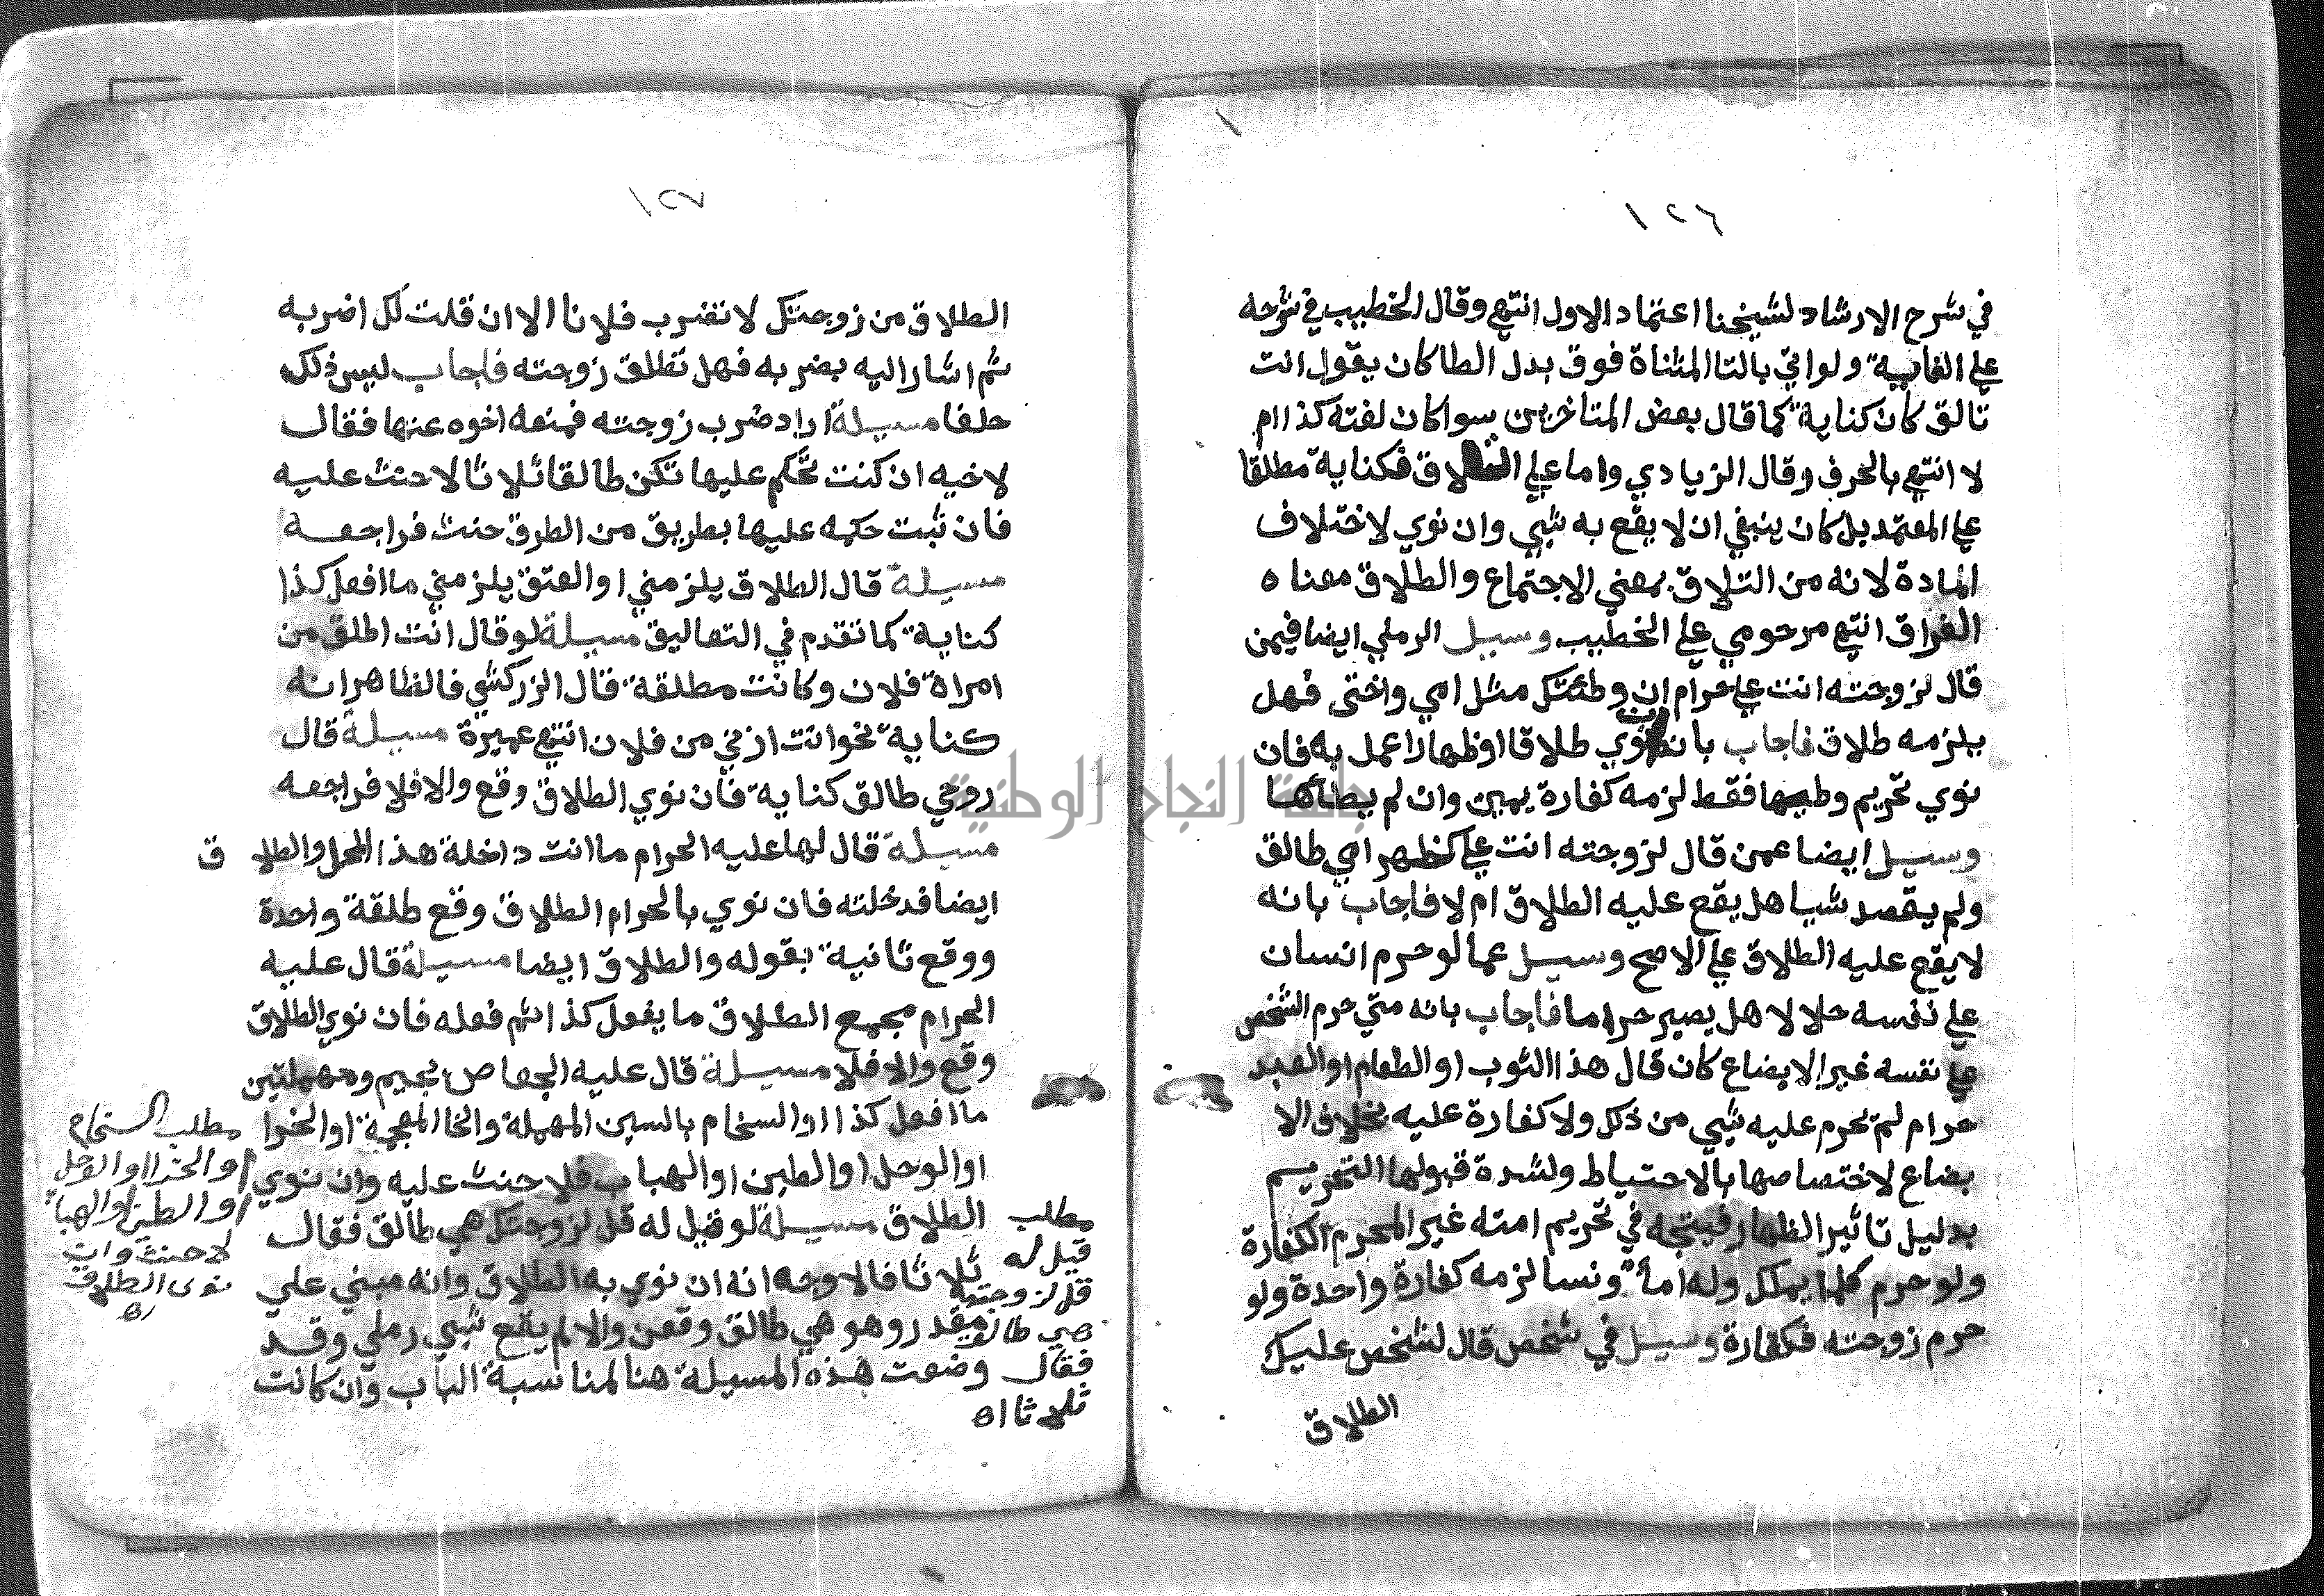 ١٢٦
في شرح الارشاد لشيخنا اعتماد الاول انتهي وقال الخطيب في شرحه
علي الغاية ولو اتي بالتا المثناة فوق بدل الطا كان يقول انت
تالق كان كناية كما قال بعض المتاخرين سوا كان لغته كذا ام
لا انتهي بالحرف وقال الزيادي واما علي التلاق فكناية مطلقا
علي المعتمد بل كان ينبغي ان لا يقع به شيي وان نوي لاختلاف
المادة لانه من التلاق بمعني الاجتماع والطلاق معناه
الفراق انتهي مرحومي علي الخطيب وسيل الرملي ايضا فيمن
قال لزوجته انت علي حرام ان وطئتك مثل امي واختي فهل
يلزمه طلاق فاجاب بانه ان نوي طلاقا اوظهارا عمل به فان
نوي تحريم وطيها فقط لزمه كفارة يمين وان لم يطاها
وسيل ايضا عمن قال لزوجته انت علي كظهر امي طالق
ولم يقصد شيا هل يقع عليه الطلاق ام لا فاجاب بانه
لا يقع عليه الطلاق علي الاصح وسيل عما لو حرم انسان
علي نفسه حلالا هل يصير حراما فاجاب بانه متي حرم الشخص
علي نفسه غير الابضاع كان قال هذا الثوب او الطعام او العبد
حرام لم يحرم عليه شيي من ذلك ولا كفارة عليه بخلاف الا
بضاع لاختصاصها بالاحتياط ولشدة قبولها التحريم
بدليل تاثير الظهار فيتجه في تحريم امته غير المحرم الكفارة
ولو حرم كلما يملك وله اماء ونسا لزمه كفارة واحدة ولو
حرم زوجته فكفارة وسيل في شخص قال لشخص عليك
الطلاق
١٢٧
الطلاق من زوجتك لا تضرب فلانا الا ان قلت لك اضربه
ثم اشار اليه بضربه فهل تطلق زوجته فاجاب ليس ذلك
حلفا مسيلة اراد ضرب زوجته فمنعه اخوه عنها فقال
لاخيه ان كنت تحكم عليها تكن طالقا ثلاثا لا حنث عليه
فان ثبت حكمه عليها بطريق من الطرق حنث فراجعه
مسيلة قال الطلاق يلزمني او العتق يلزمني ما افعل كذا
كناية كما تقدم في التعاليق مسيلة لو قال انت اطلق من
امراة فلان وكانت مطلقة قال الزركشي فالظاهر انه
كناية نحو انت ازني من فلان انتهي عميرة مسيلة قال
روحي طالق كناية فان نوي الطلاق وقع والا فلا فراجعه
مسيلة قال لها عليه الحرام ما انت داخلة هذا المحل والطلاق
ايضا فدخلته فان نوي بالحرام الطلاق وقع طلقة واحدة
ووقع ثانية بقوله والطلاق ايضا مسيلة قال عليه
الحرام مجمع الطلاق ما يفعل كذا ثم فعله فان نوي الطلاق
وقع والا فلا مسيلة قال عليه الجعاص بجيم ومهملتين
ما افعل كذا او السخام بالسين المهملة والخا المعجمة او الخرا
او الوحل او الطين او الهباب فلا حنث عليه وان نوي
الطلاق مسيلة لو قيل له قل لزوجتك هي طالق فقال
ثلاثا فالاوجه انه ان نوي به الطلاق وانه مبني علي
مقدر وهو هي طالق وقعن والا لم يقع شيي رملي وقد
وضعت هذه المسيلة هنا لمناسبة الباب وان كانت
مطلب السخام
او الخرا او الوحل
او الطين او الهباب
لا حنث وان
نوي الطلاق
اه
مطلب
قيل له
قل لزوجتك
هي طالق
فقال
ثلاثا اه
جامعة النجاح الوطنية